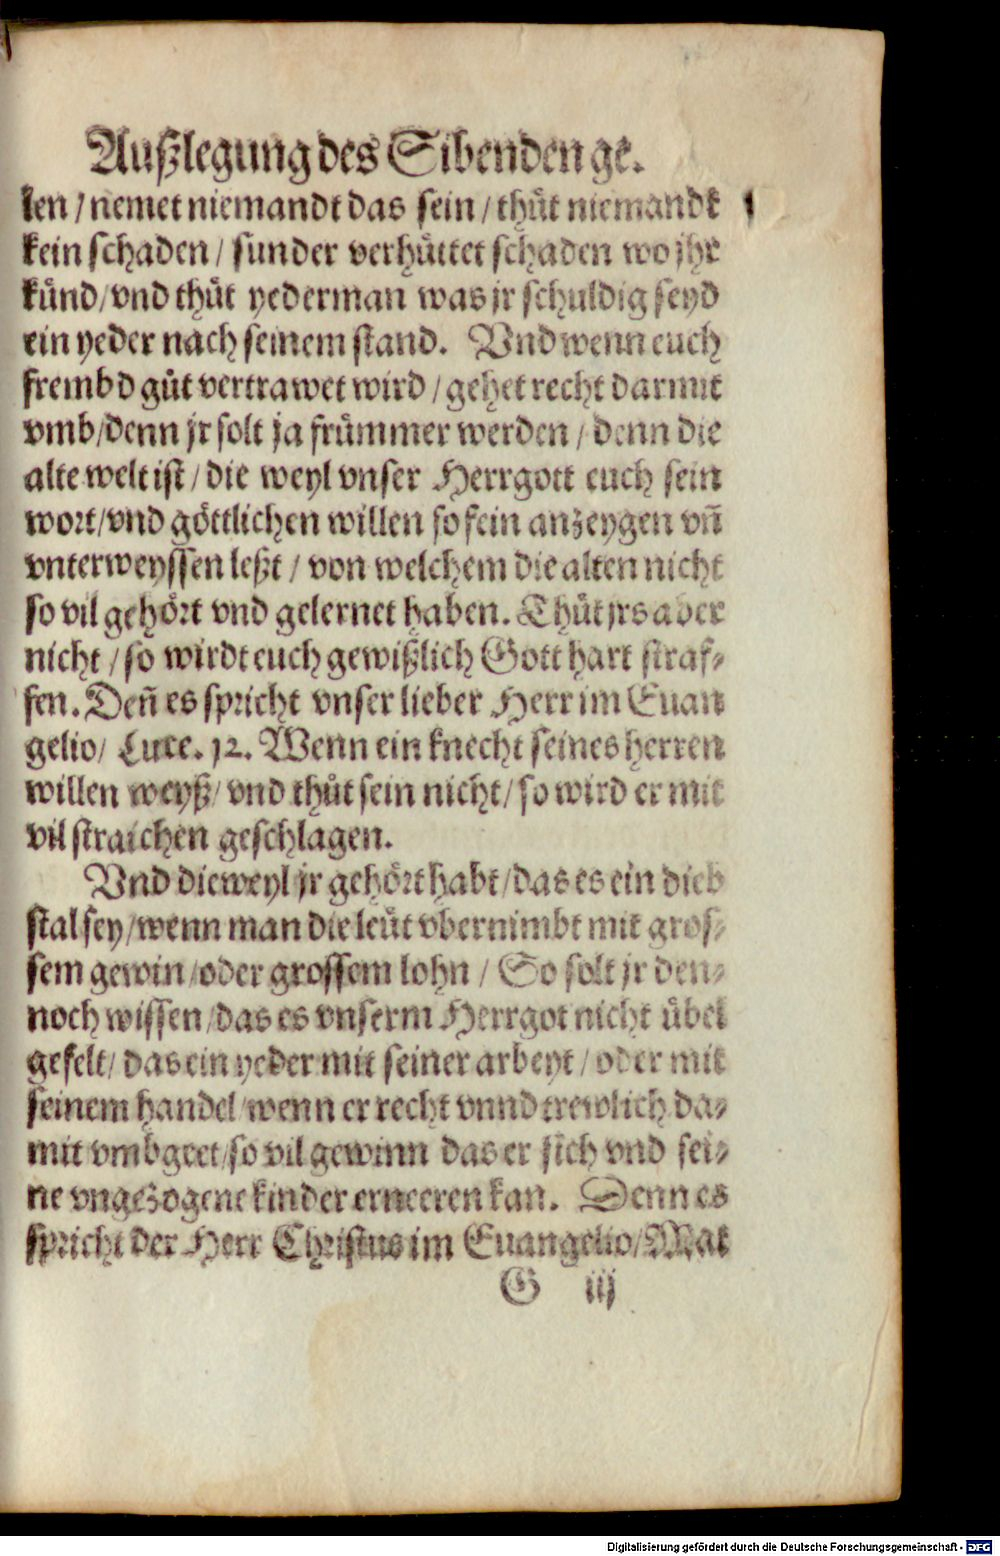 Außlegung des Sibenden ge.
len / nemet niemandt das sein / thůt niemandt
kein schaden / sunder verhüttet schaden wo jhr
künd / vnd thůt yederman was jr schuldig seyd
ein yeder nach seinem stand. Vnd wenn euch
frembd gůt vertrawet wird / gehet recht darmit
vmb / denn jr solt ja frümmer werden / denn die
alte welt ist / die weyl vnser Herrgott euch sein
wort / vnd göttlichen willen so fein anzeygen vñ
vnterweyssen leßt / von welchem die alten nicht
so vil gehört vnd gelernet haben. Thůt jrs aber
nicht / so wirdt euch gewißlich Gott hart straf⸗
fen. Deñ es spricht vnser lieber Herr im Euan
gelio / Luce. 12. Wenn ein knecht seines herren
willen weyß / vnd thůt sein nicht / so wird er mit
vil straichen geschlagen.
Vnd dieweyl jr gehört habt / das es ein dieb
stal sey / wenn man die leüt vbernimbt mit gros⸗
sem gewin / oder grossem lohn / So solt jr den⸗
noch wissen / das es vnserm Herrgot nicht übel
gefelt / das ein yeder mit seiner arbeyt / oder mit
seinem handel / wenn er recht vnnd trewlich da⸗
mit vmbgeet / so vil gewinn das er sich vnd sei⸗
ne vngezogene kinder erneeren kan. Denn es
spricht der Herr Christus im Euangelio / Mat
G iij
Digitalisierung gefördert durch die Deutsche Forschungsgemeinschaft - DFG